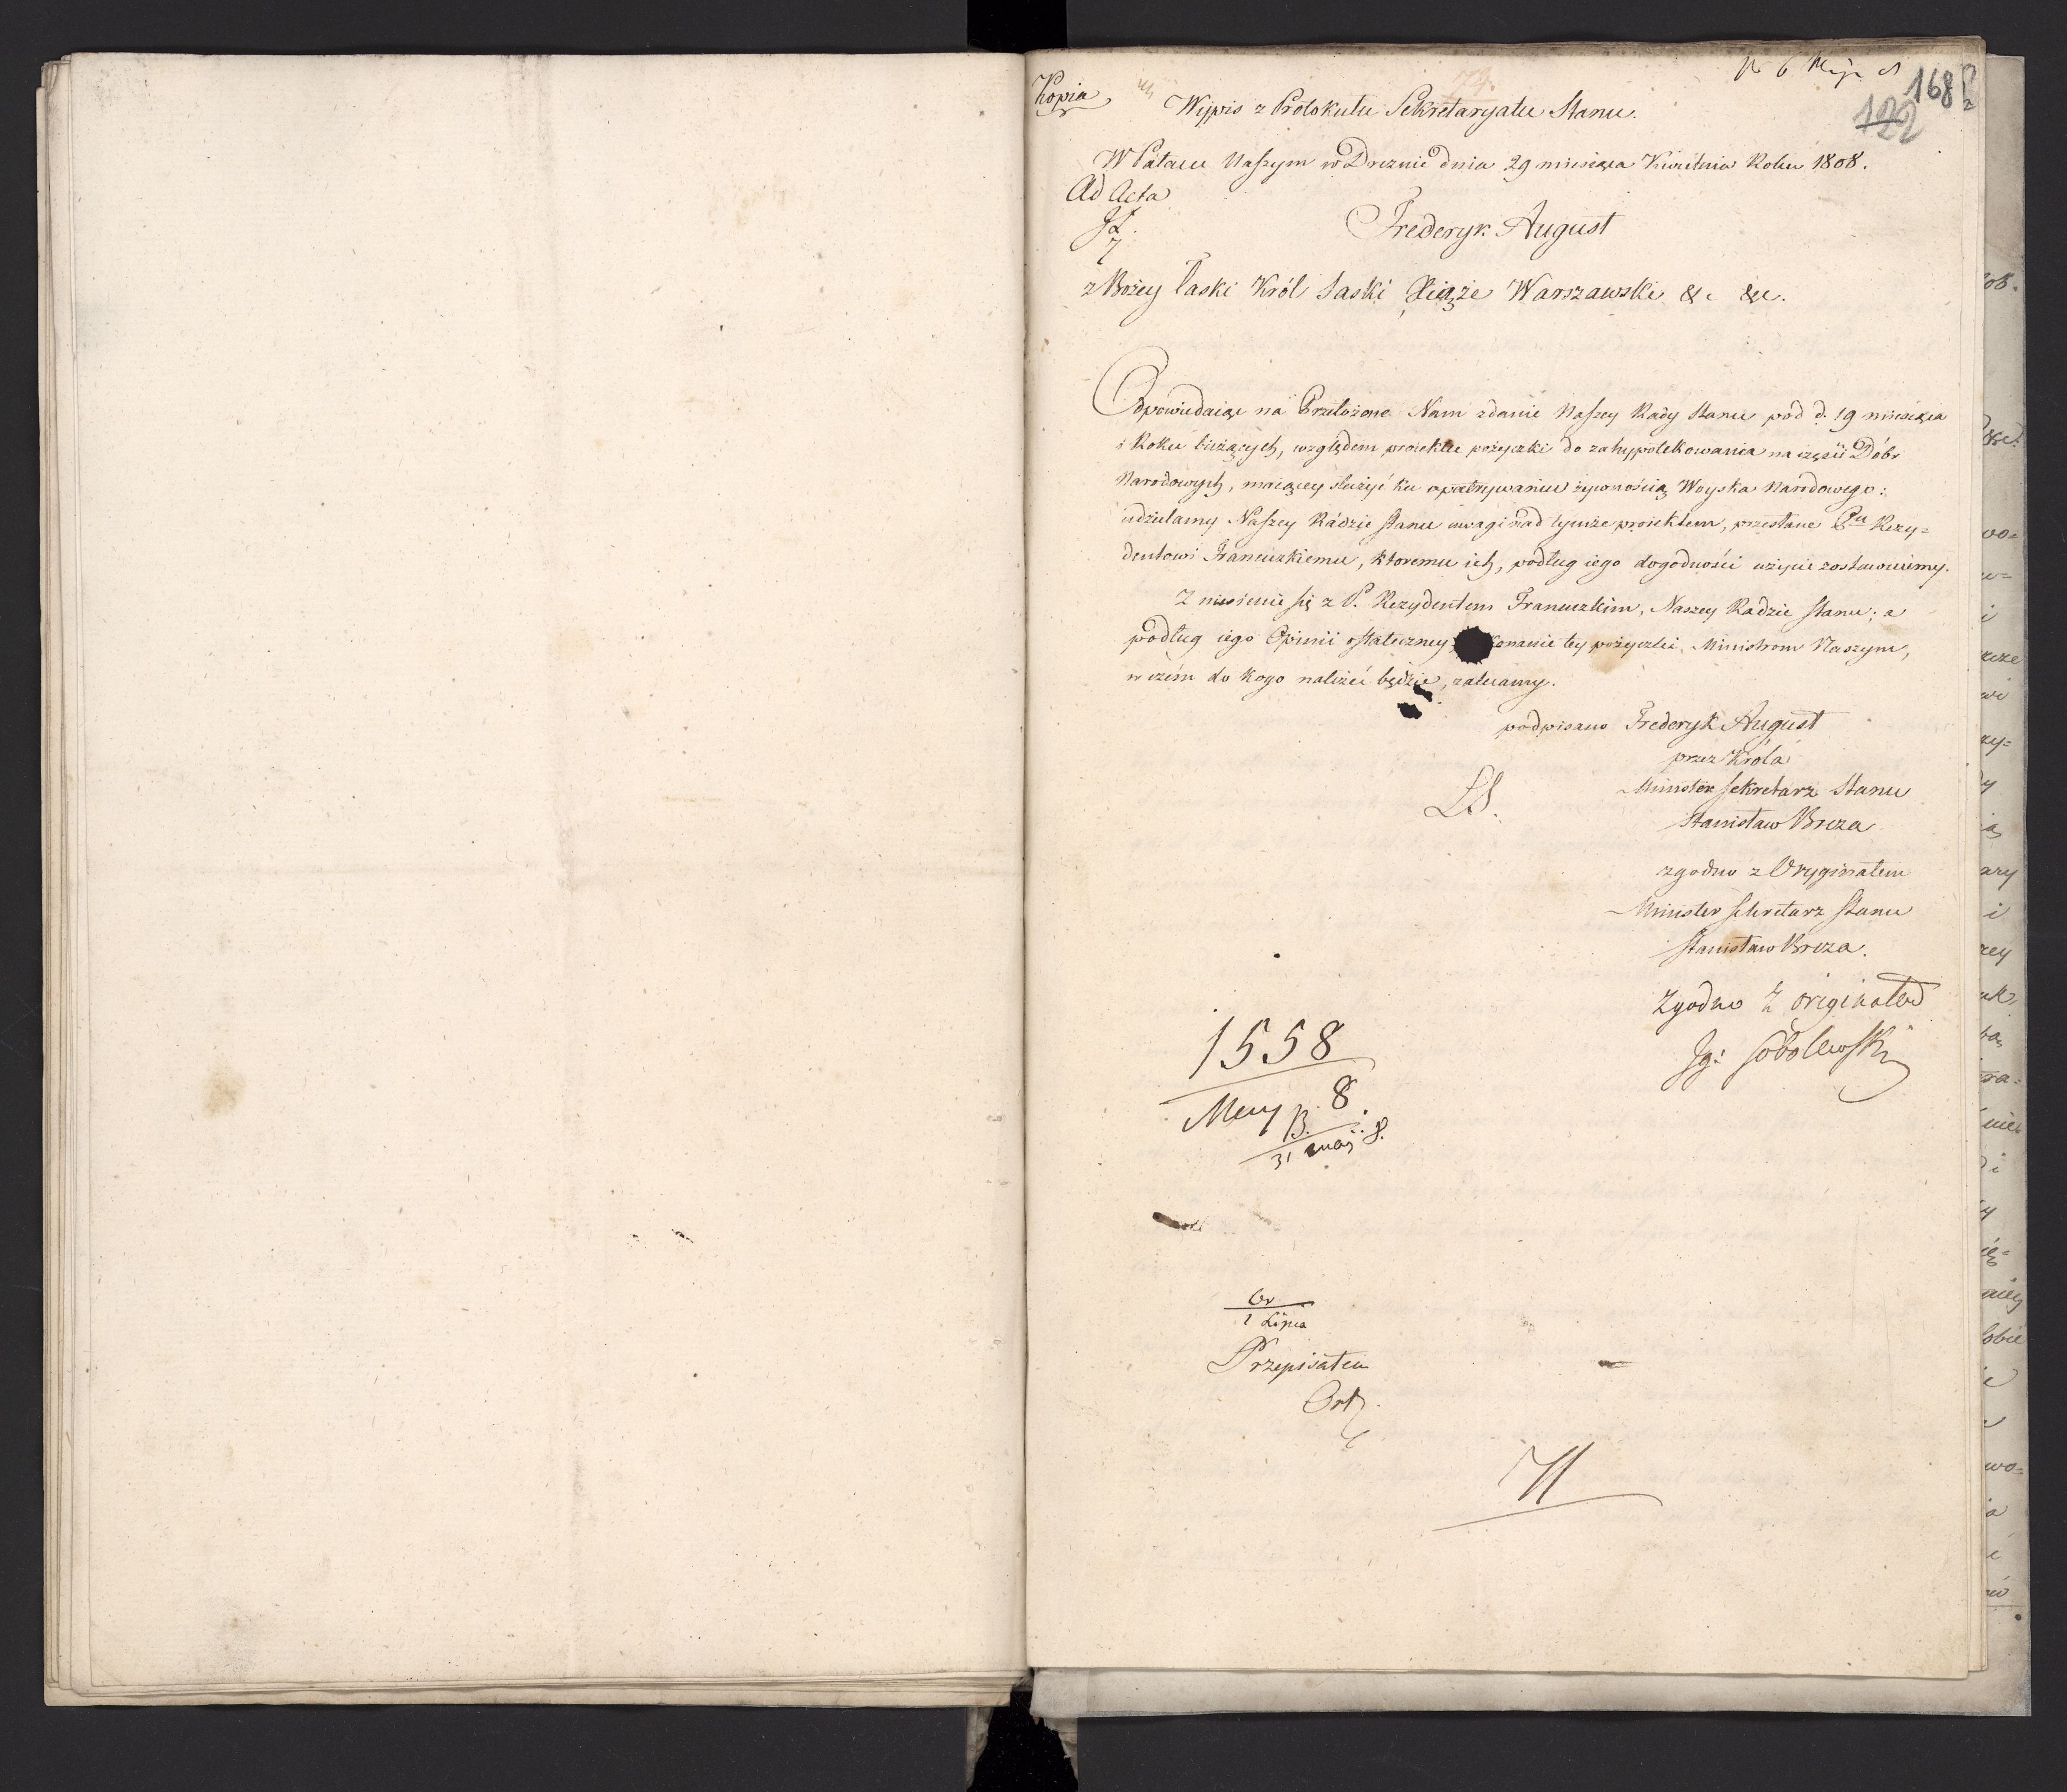 Kopia
168
122
Wÿpis z Protokułu Sekretaryatu Stanu.
W Pałacu Naszym w Dreznie dnia 29 miesiąca Kwietnia Roku 1808.
Ad Acta
Frederyk August
z Bożey Łaski Król Saski, Xiąże Warszawski &c &c.
Odpowiedaiąc na Przełożone Nam zdanie Naszey Rady Stanu pod d. 19 miesiąca
i Roku bieżących, względem proiektu pożyczki do zahypotekowania na części Dóbr
Narodowych, maiącey służyć ku opatrywaniu żywnością Woyska Narodowego:
udzielamy Naszey Radzie Stanu uwagi nad tymże proiektem, przesłane Pu Rezy=
dentowi Francuzkiemu, ktoremu ich, podług iego dogodności użycie zostawuiemy.
Zniesienie się z P. Rezydentem Francuzkim, Naszey Radzie Stanu; a
podług iego Opinii ostateczney, konanie tey pożyczki, Ministrom Naszym,
w czém do kogo należeć będzie, zalecamy.
podpisano Frederyk August
przez Króla
Minister Sekretarz Stanu
LS.
Stanisław Breza
zgodno z Oryginałem
Minister Sekretarz Stanu
Stanisław Breza.
Zgodno z originałem
Ig: Sobolewski
1558
8
31 maj 8.
1 Lipca
Przepisałem
Ort